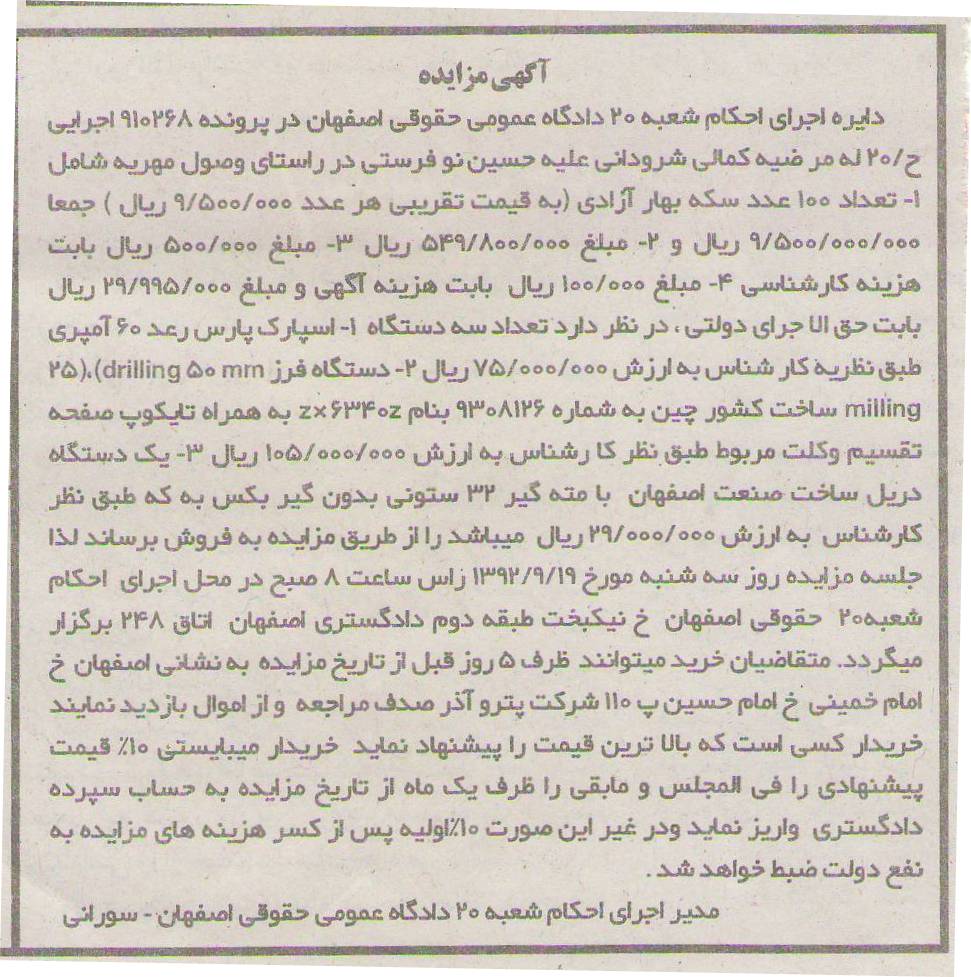 آگهی مزایده
دایره اجرای احکام شعبه ۲۰ دادگاه عمومی حقوقی اصفهان در پرونده ۹۱۰۲۶۸ اجرایی
ح/۲۰ له مر ضیه کمالی شرودانی علیه حسین نو فرستی در راستای وصول مهریه شامل
۱- تعداد ۱۰۰ عدد سکه بهار آزادی (به قیمت تقریبی هر عدد ۹/۵۰۰/۰۰۰ ریال ) جمعا
۹/۵۰۰/۰۰۰/۰۰۰ ریال و ۲- مبلغ ۵۴۹/۸۰۰/۰۰۰ ریال ۳- مبلغ ۵۰۰/۰۰۰ ریال بابت
هزینه کارشناسی ۴- مبلغ ۱۰۰/۰۰۰ ریال بابت هزینه آگهی و مبلغ ۲۹/۹۹۵/۰۰۰ ریال
بابت حق الا جرای دولتی ، در نظر دارد تعداد سه دستگاه ۱- اسپارک پارس رعد ۶۰ آمپری
طبق نظریه کار شناس به ارزش ۷۵/۰۰۰/۰۰۰ ریال ۲- دستگاه فرز drilling ۵۰ mm)،(۲۵
milling ساخت کشور چین به شماره ۹۳۰۸۱۲۶ بنام z×۶۳۴۰z به همراه تایکوپ صفحه
تقسیم وکلت مربوط طبق نظر کا رشناس به ارزش ۱۰۵/۰۰۰/۰۰۰ ریال ۳- یک دستگاه
دریل ساخت صنعت اصفهان با مته گیر ۳۲ ستونی بدون گیر بکس به که طبق نظر
کارشناس به ارزش ۲۹/۰۰۰/۰۰۰ ریال میباشد را از طریق مزایده به فروش برساند لذا
جلسه مزایده روز سه شنبه مورخ ۱۳۹۲/۹/۱۹ زاس ساعت ۸ صبح در محل اجرای احکام
شعبه۲۰ حقوقی اصفهان خ نیکبخت طبقه دوم دادگستری اصفهان اتاق ۲۴۸ برگزار
میگردد. متقاضیان خرید میتوانند ظرف ۵ روز قبل از تاریخ مزایده به نشانی اصفهان خ
امام خمینی خ امام حسین پ ۱۱۰ شرکت پترو آذر صدف مراجعه و از اموال بازدید نمایند
خریدار کسی است که بالا ترین قیمت را پیشنهاد نماید خریدار میبایستی ۱۰٪ قیمت
پیشنهادی را فی المجلس و مابقی را ظرف یک ماه از تاریخ مزایده به حساب سپرده
دادگستری واریز نماید ودر غیر این صورت ۱۰٪اولیه پس از کسر هزینه های مزایده به
نفع دولت ضبط خواهد شد .
مدیر اجرای احکام شعبه ۲۰ دادگاه عمومی حقوقی اصفهان - سورانی